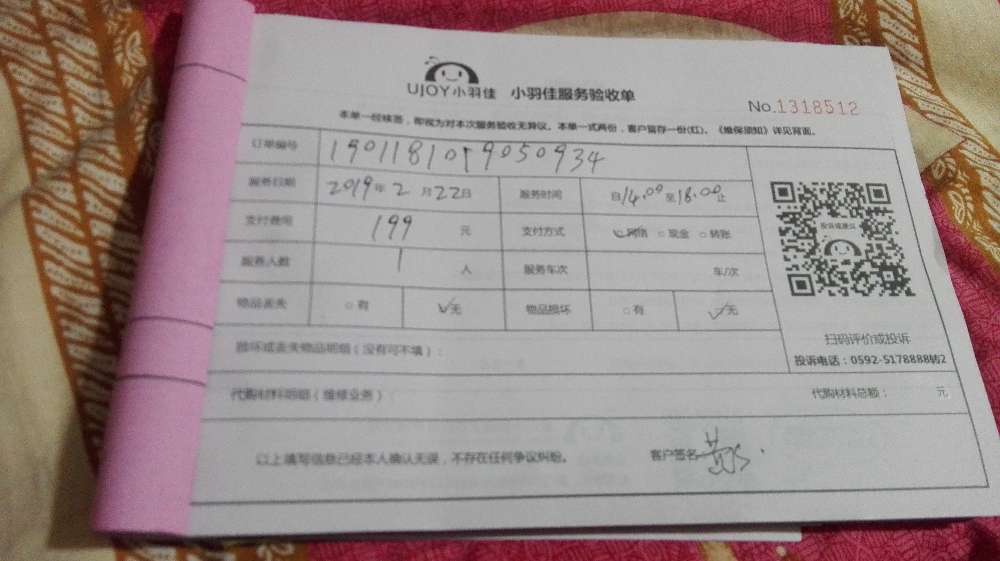 UJOY小羽佳 小羽佳服务验收单
No.1318512
本单一经核签，即视为对本次服务验收无异议。本单一式两份，客户留存一份(红)。《维保须知》详见背面。
订单编号 1901181019050934
服务日期 2019年2月22日 服务时间 自14:00至18:00止
支付费用 199元 支付方式 网络 现金 转账
服务人数 1人 服务车次 车/次
物品丢失 有 无 物品损坏 有 无
投诉或建议
扫码评价或投诉
投诉电话：0592-5178888转2
损坏或丢失物品明细（没有可不填）：
代购材料明细（维修业务） 代购材料总额： 元
以上填写信息已经本人确认无误，不存在任何争议纠纷。 客户签名